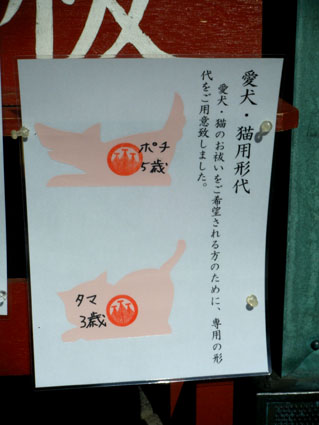 愛犬・猫用形代
愛犬・猫のお祓いをご希望される方のために、専用の形
代をご用意致しました。
ポチ
5歳
タマ
3歳